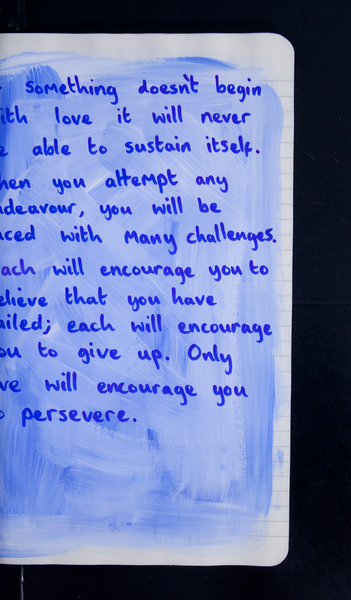 something doesn't begin
ith love it will never
e able to sustain itself.
hen you attempt any
ndeavour, you will be
aced with many challenges.
ach will encourage you to
elieve that you have
ailed; each will encourage
ou to give up. Only
ve will encourage you
o persevere.